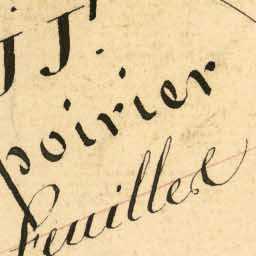 JJ.
poirier
feuilles